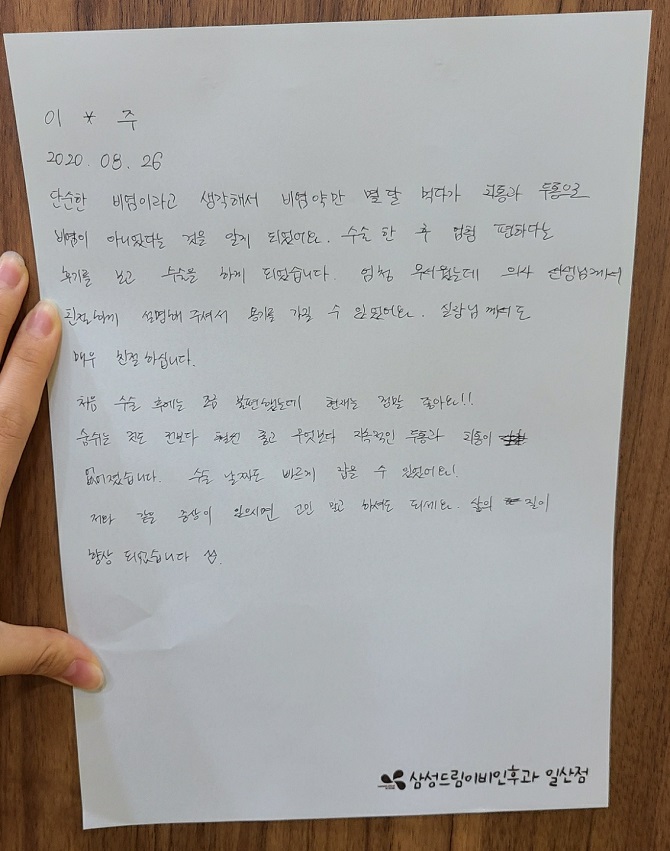 이 * 주
2020. 08. 26
단순한 비염이라고 생각해서 비염약만 몇달 먹다가 치통과 두통으로
비염이 아니었다는 것을 알게 되었어요. 수술 한 후 엄청 편하다는
후기를 보고 수술을 하게 되었습니다. 엄청 무서웠는데 의사 선생님께서
친절하게 설명해 주셔서 용기를 가질 수 있었어요. 실장님께서도
매우 친절 하십니다.
처음 수술 후에는 조금 불편했는데 현재는 정말 좋아요!!
숨쉬는 것도 전보다 훨씬 좋고 무엇보다 지속적인 두통과 치통이
없어졌습니다. 수술 날짜도 빠르게 잡을 수 있었어요!
저와 같은 증상이 있으시면 고민 말고 하셔도 되세요. 삶의 질이
향상 되었습니다 ^^.
삼성드림이비인후과 일산점